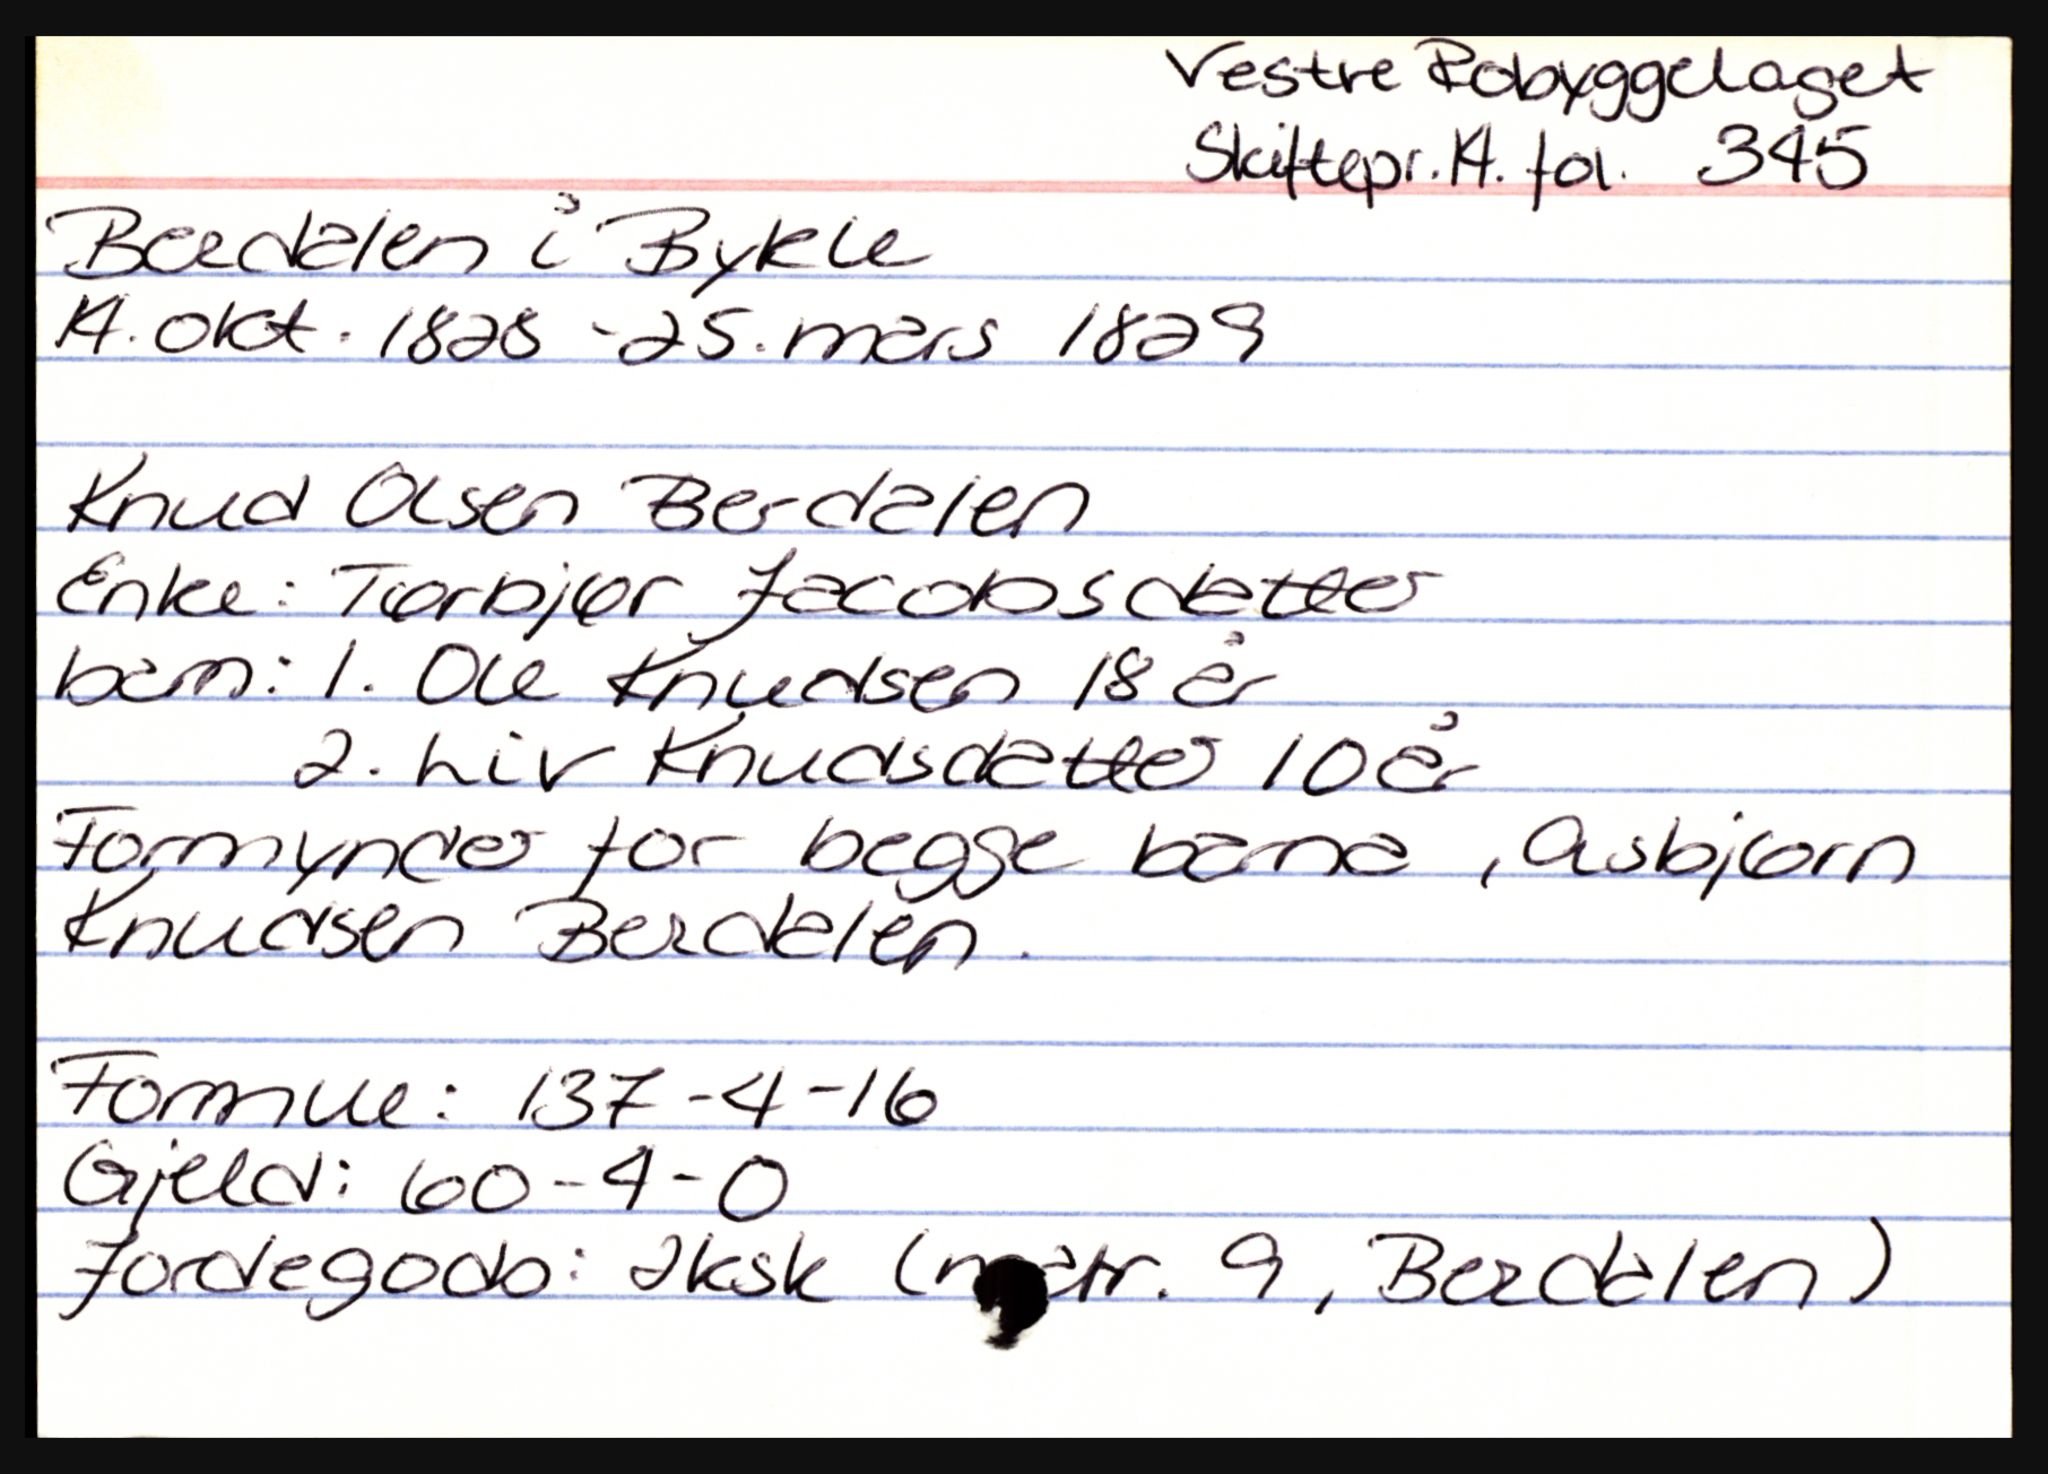 Vestre Robyggelaget
Skiftepr. 14. fol. 345
Berdalen i Bykle
14. okt. 1828 - 25. mars 1829
Knud Olsen Berdalen
Enke: Tørbjør Jacobsdatter
barn: 1. Ole Knudsen 18 år
2. Liv Knudsdatter 10 år
Formynder for begge barna, Asbjørn
Knudsen Berdalen.
Formue: 137-4-16
Gjeld: 60-4-0
Jordegods: 2ksk (matr. 9, Berdalen)